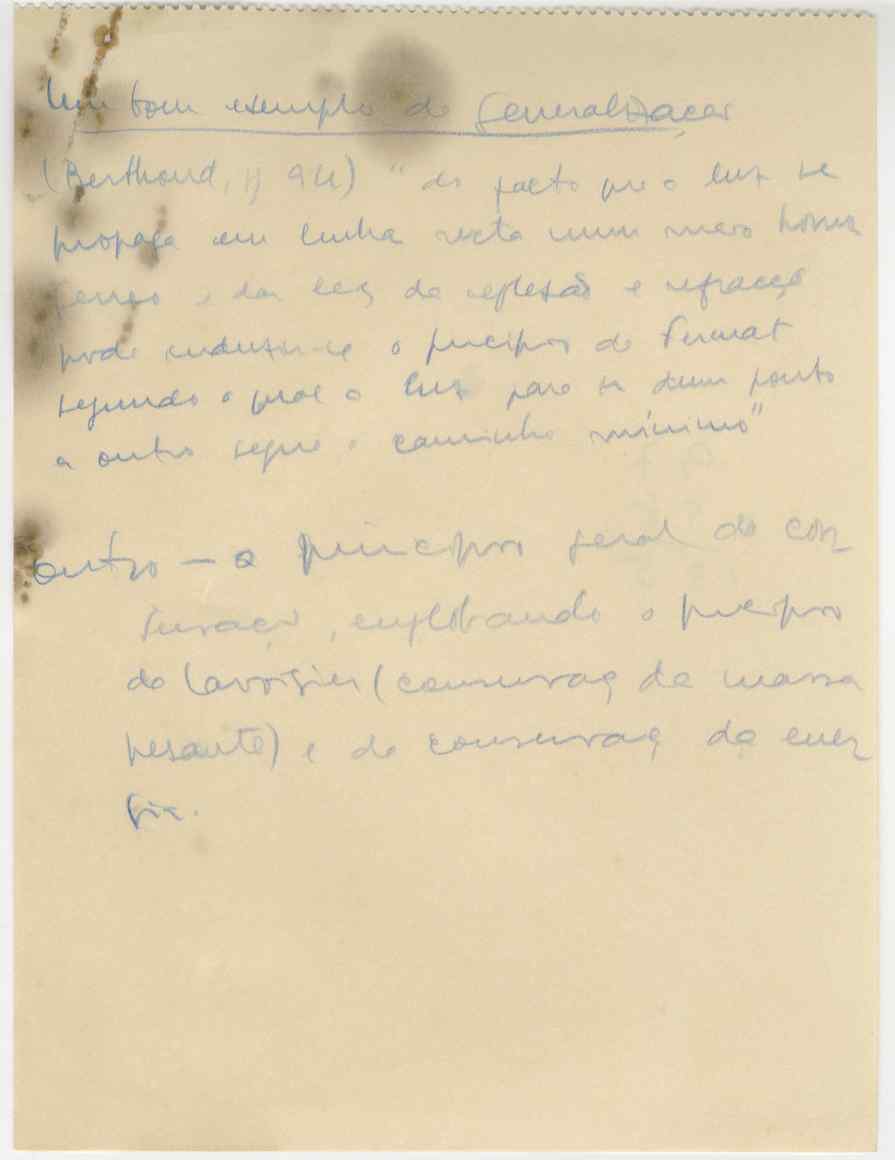 Um bom exemplo de generalização
(Berthoud, pg 94) "do facto que a luz se
propaga em linha recta num meio homo
géneo e das leis da reflexão e refracção
pode induzir-se o princípio de Fermat
segundo o qual a luz para ir dum ponto
a outro segue o caminho mínimo"
outro — o princípio geral da con
servação, englobando o princípio
de Lavoisier (conservaç da massa
pesante) e da conservaç da ener
gia.